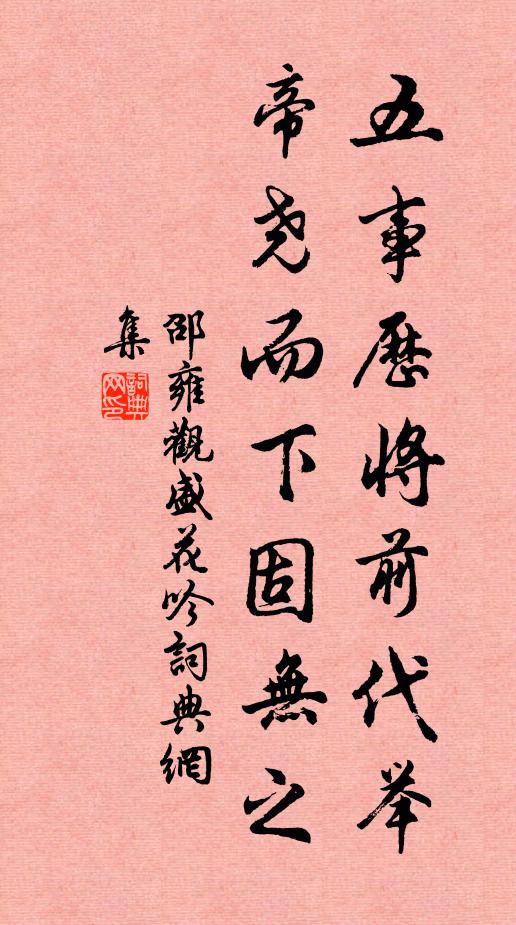 五事歷將前代举
帝尧而下固無之
邵雍觀盛花吟詞典網
集
詞典
网印